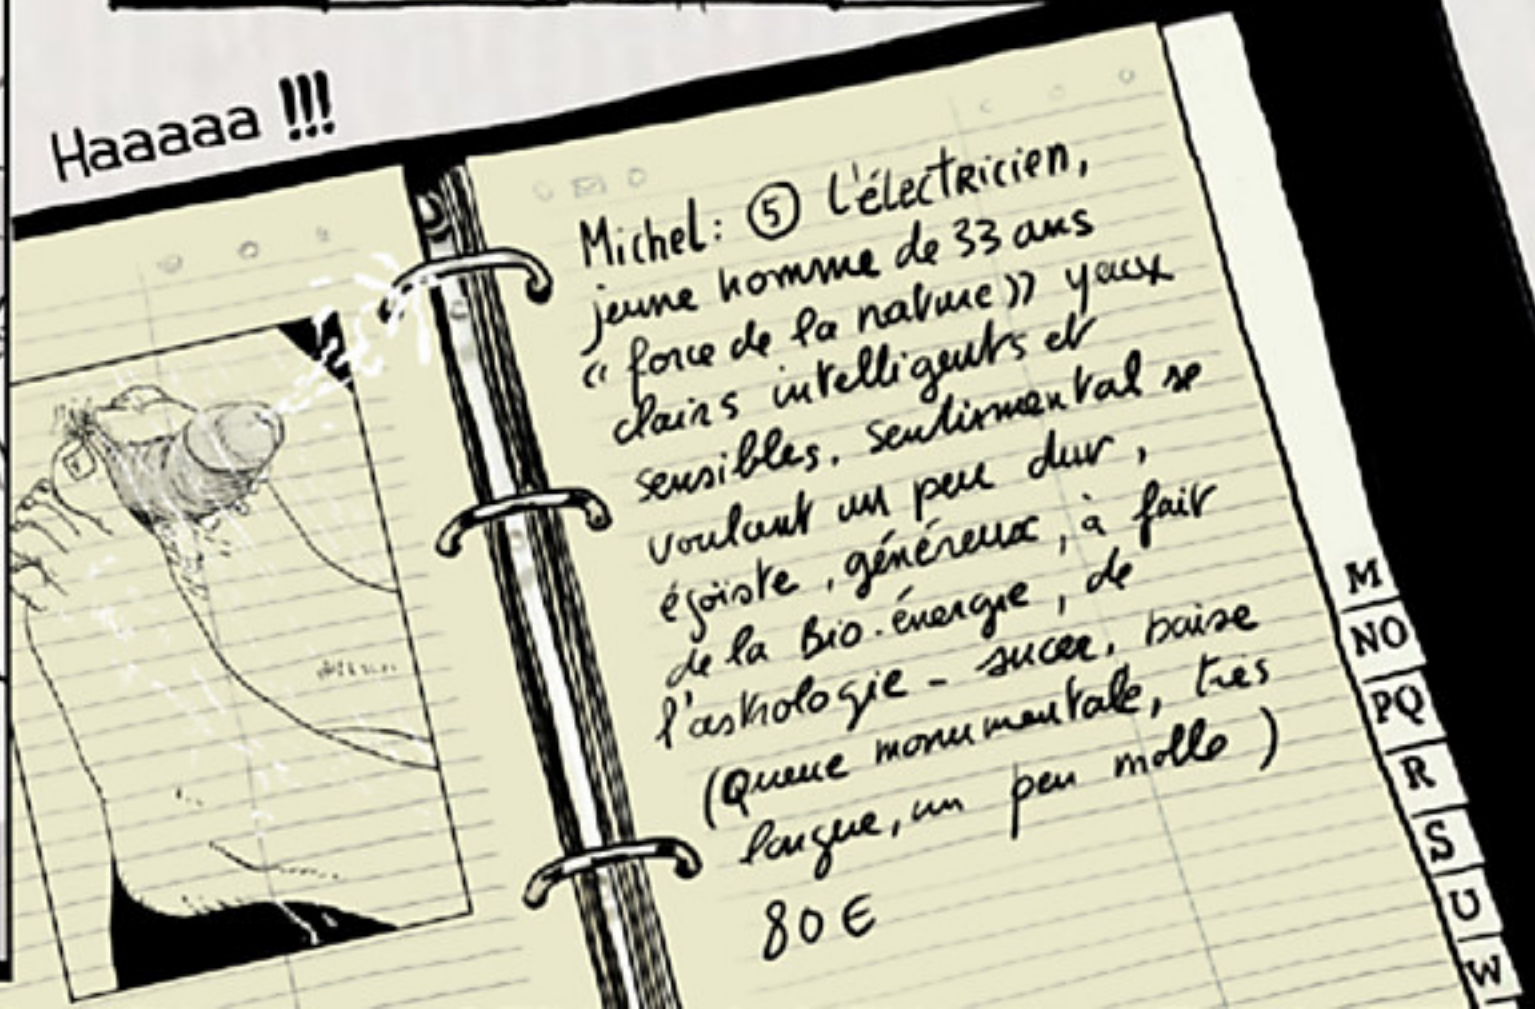 Haaaaa !!!
Michel : ⑤ l'électricien,
jeune homme de 33 ans
« force de la nature » yeux
clairs intelligents et
sensibles. sentimental se
voulant un peu dur,
égoïste, généreux, à fait
de la Bio-énergie, de
l'astrologie - sucer, baise
(Queue monumentale, très
longue, un peu molle)
80 €
M
NO
PQ
R
S
U
W